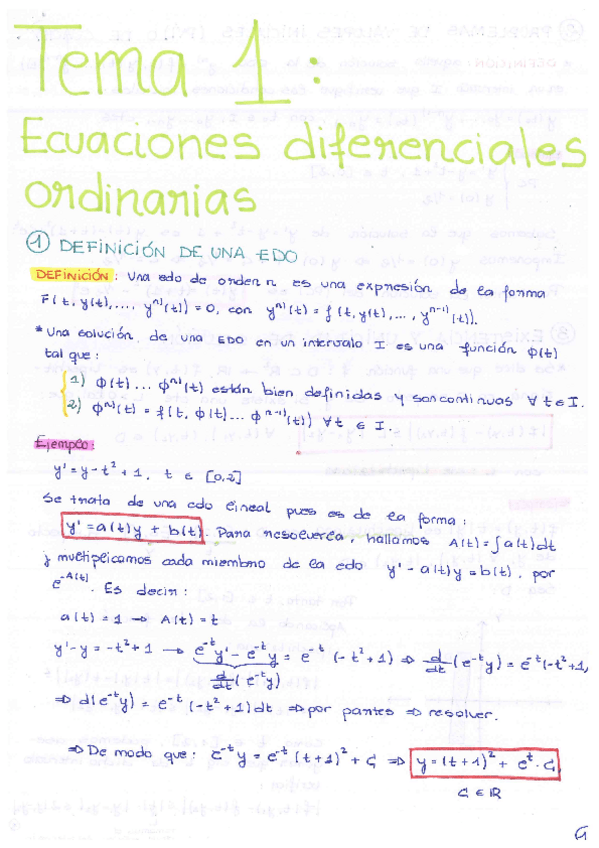 Tema 1:
Ecuaciones diferenciales
ordinarias
① DEFINICIÓN DE UNA EDO
DEFINICIÓN: Una edo de orden n es una expresión de la forma
F(t, y(t), ... yⁿ⁾(t)) = 0, con yⁿ⁾(t) = f(t, y(t), ..., yⁿ⁻¹⁾(t)).
* Una solución de una EDO en un intervalo I es una función ϕ(t)
tal que:
1) ϕ(t)... ϕⁿ⁾(t) están bien definidas y son continuas ∀ t ∈ I.
2) ϕⁿ⁾(t) = f(t, ϕ(t)... ϕⁿ⁻¹⁾(t)) ∀t ∈ I.
Ejemplo:
y' = y - t² + 1, t ∈ [0,2]
Se trata de una edo lineal pues es de la forma:
y' = a(t)y + b(t). Para resolverla, hallamos A(t) = ∫a(t)dt
y multiplicamos cada miembro de la edo y' - a(t)y = b(t), por
e^(-A(t)). Es decir:
a(t) = 1 → A(t) = t
y' - y = -t² + 1 → e^(-t)y' - e^(-t)y = e^(-t)(-t² + 1) ⇒ d/dt(e^(-t)y) = e^(-t)(-t² + 1)
d/dt(e^(-t)y)
⇒ d(e^(-t)y) = e^(-t)(-t² + 1)dt ⇒ por partes ⇒ resolver.
⇒ De modo que: e^(-t)y = e^(-t)(t + 1)² + C ⇒ y = (t + 1)² + e^t · C,
C ∈ ℝ
1